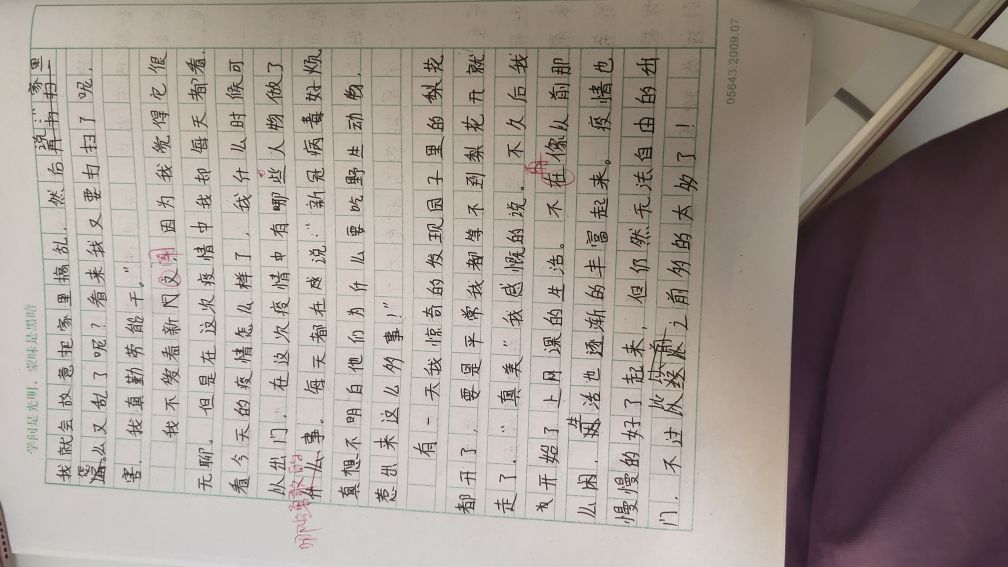 学问是光明，蒙昧是黑暗
我就会故意把家里搞乱，然后再打扫一说："家里
怎么又乱了呢？看来我又要打扫了呢，
害，我真勤劳能干。"
我不爱看新闻文闻因为我觉得它很
无聊。但是在这次疫情中我却每天都看，
看今天的疫情怎么样了，我什么时候可
以出门，在这次疫情中有哪些人物做了
哪些勇敢的
什么事。每天都在感说："新冠病毒好烦
真想不明白他们为什么要吃野生动物，
惹出来这么多事！"
有一天我惊奇的发现园子里的梨花
都开了，要是平常我都等不到梨花开就
走了，"真美"我感慨的说。不久后我
再
开始了上网课的生活。不在像以前那
么困，生活也逐渐的丰富起来。疫情也
慢慢的好了起来，但仍然无法自由的出
门，不过比之前多的太多了！
05643.2009.07